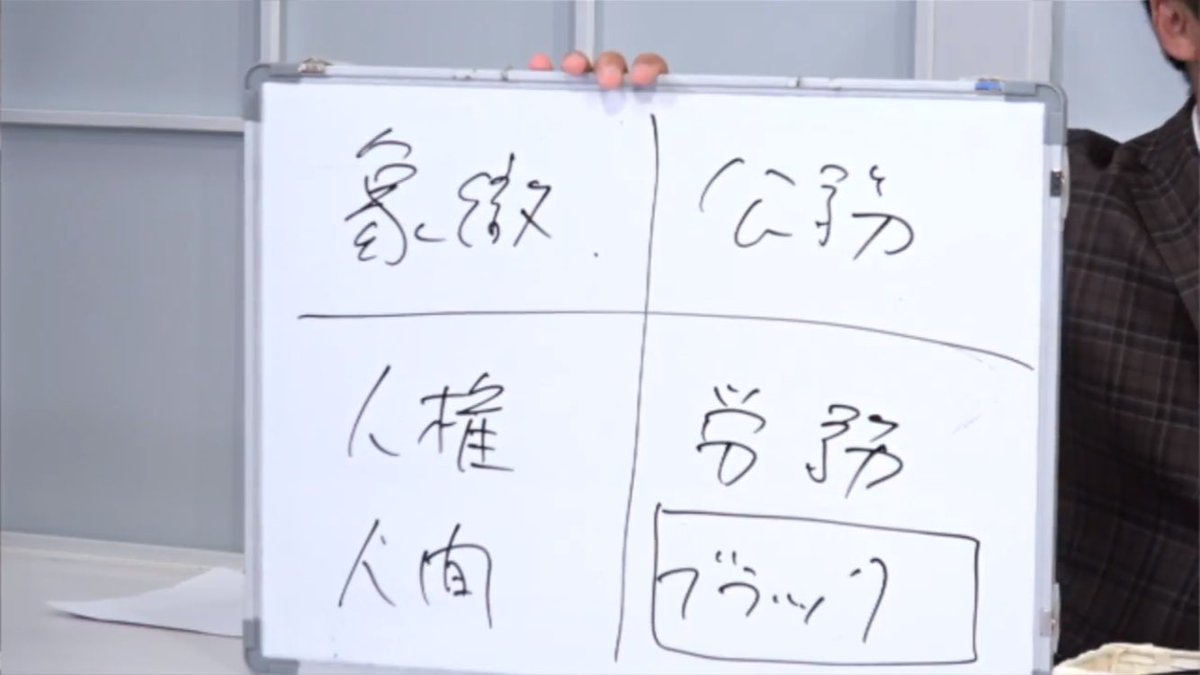 象徴
公務
人権
労務
人間
ブラック